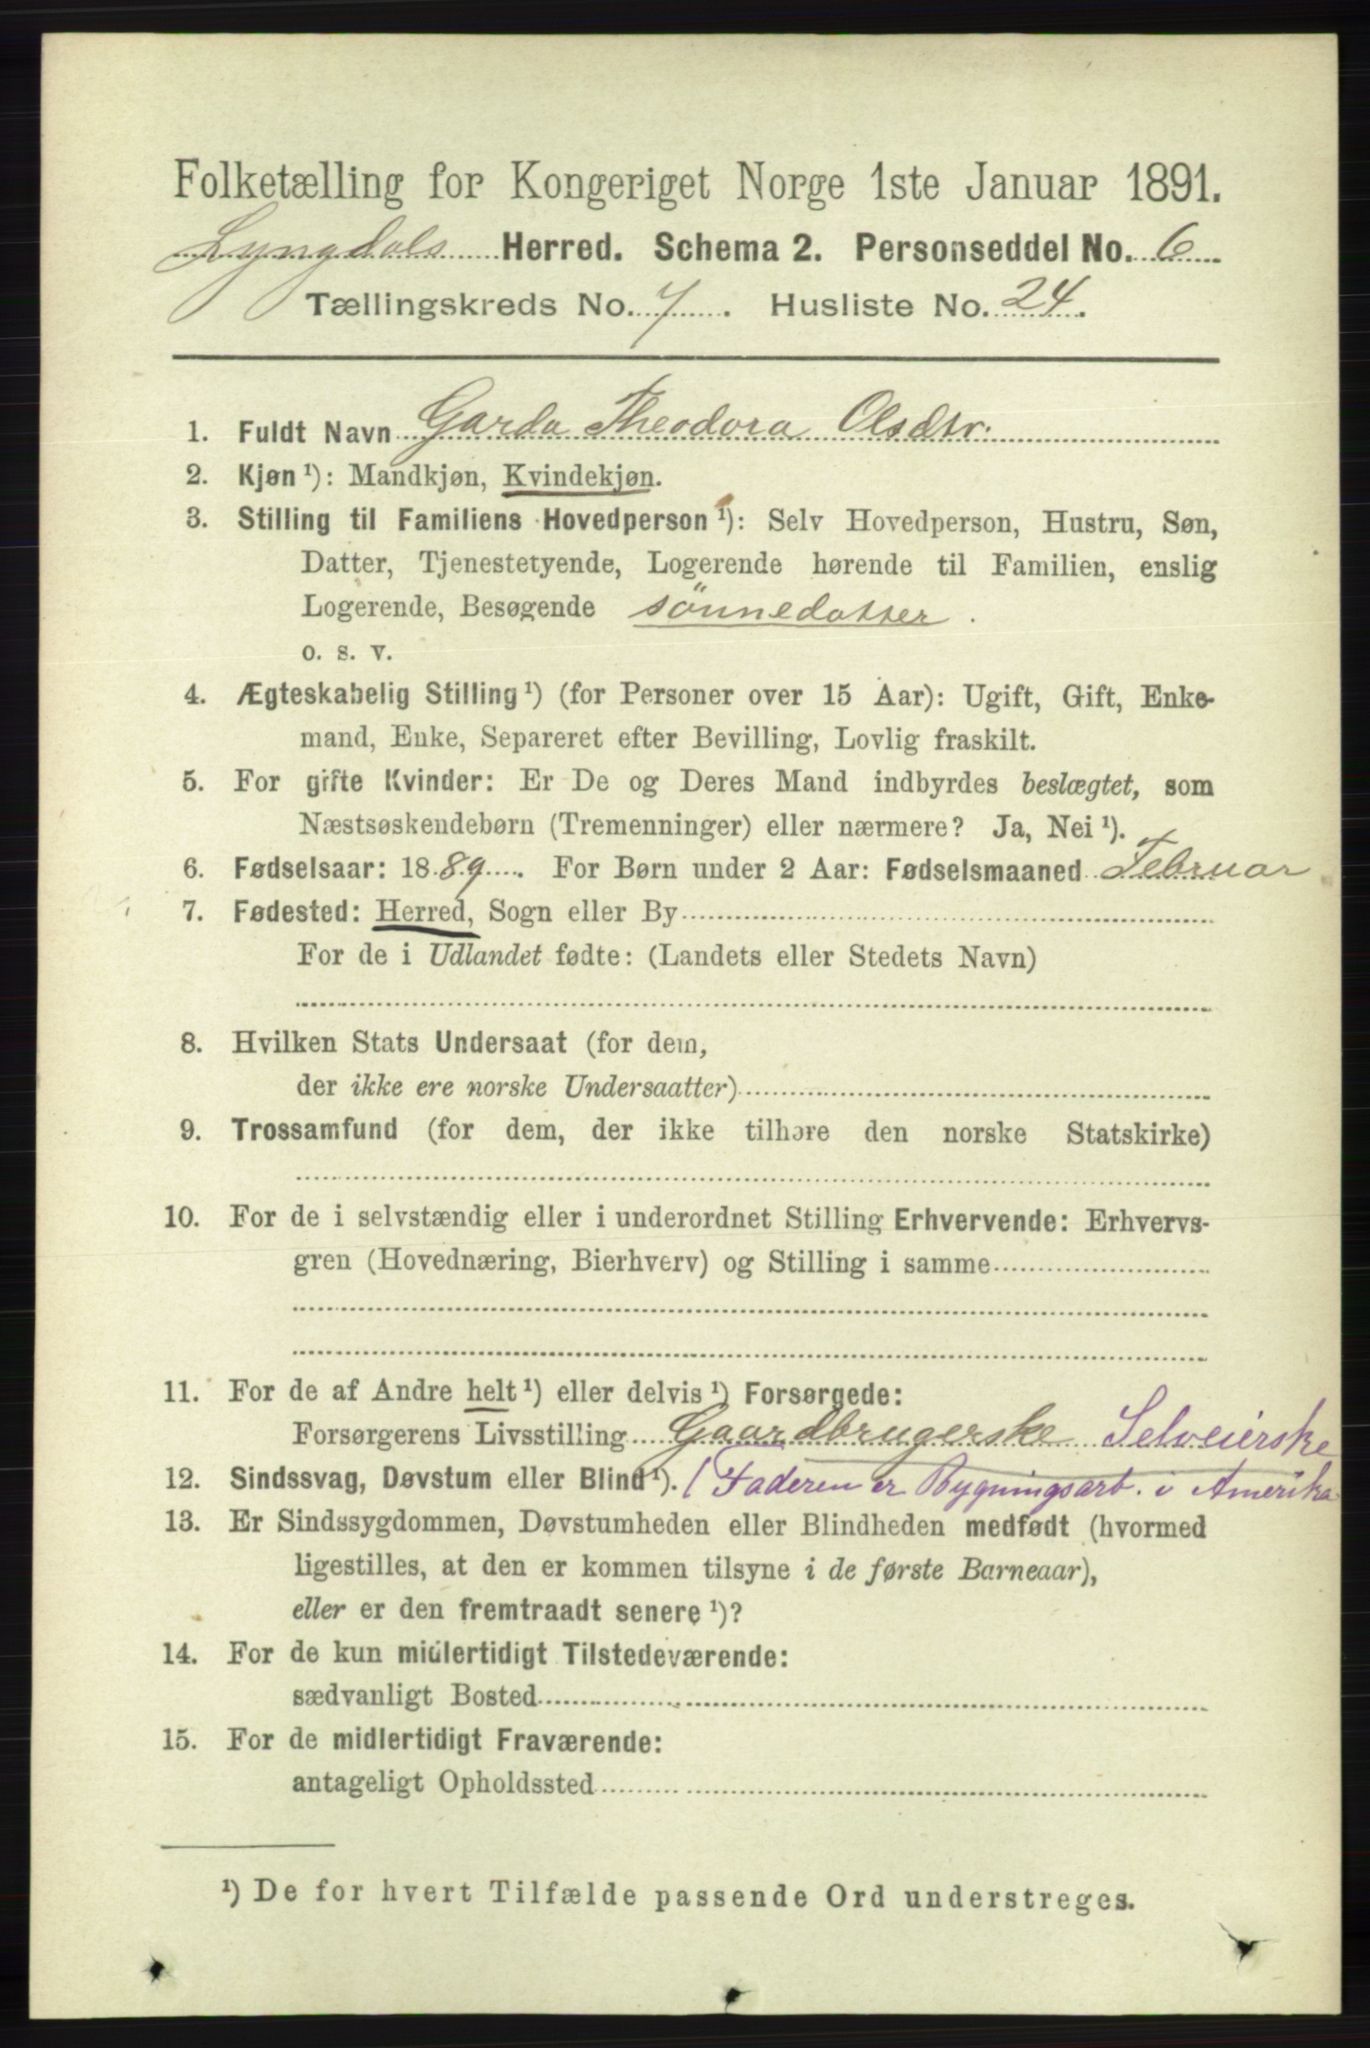 Folketælling for Kongeriget Norge 1ste Januar 1891.
Lyngdals Herred. Schema 2. Personseddel No. 6
Tællingskreds No. 7. Husliste No. 24.
1. Fuldt Navn Garda Theodora Olsdtr.
2. Kjøn ¹): Mandkjøn, Kvindekjøn.
3. Stilling til Familiens Hovedperson ¹): Selv Hovedperson, Hustru, Søn,
Datter, Tjenestetyende, Logerende hørende til Familien, enslig
Logerende, Besøgende sönnedatter.
o. s. v.
4. Ægteskabelig Stilling ¹) (for Personer over 15 Aar): Ugift, Gift, Enke-
mand, Enke, Separeret efter Bevilling, Lovlig fraskilt.
5. For gifte Kvinder: Er De og Deres Mand indbyrdes beslægtet, som
Næstsøskendebørn (Tremenninger) eller nærmere? Ja, Nei ¹).
6. Fødselsaar: 1889. For Børn under 2 Aar: Fødselsmaaned Februar
7. Fødested: Herred, Sogn eller By
For de i Udlandet fødte: (Landets eller Stedets Navn)
8. Hvilken Stats Undersaat (for dem,
der ikke ere norske Undersaatter)
9. Trossamfund (for dem, der ikke tilhøre den norske Statskirke)
10. For de i selvstændig eller i underordnet Stilling Erhvervende: Erhvervs-
gren (Hovednæring, Bierhverv) og Stilling i samme
11. For de af Andre helt ¹) eller delvis ¹) Forsørgede:
Forsørgerens Livsstilling Gaardbrugerske Selveierske
12. Sindssvag, Døvstum eller Blind ¹). (Faderen er Bygningsarb. i Amerika
13. Er Sindssygdommen, Døvstumheden eller Blindheden medfødt (hvormed
ligestilles, at den er kommen tilsyne i de første Barneaar),
eller er den fremtraadt senere ¹)?
14. For de kun midlertidigt Tilstedeværende:
sædvanligt Bosted
15. For de midlertidigt Fraværende:
antageligt Opholdssted
¹) De for hvert Tilfælde passende Ord understreges.